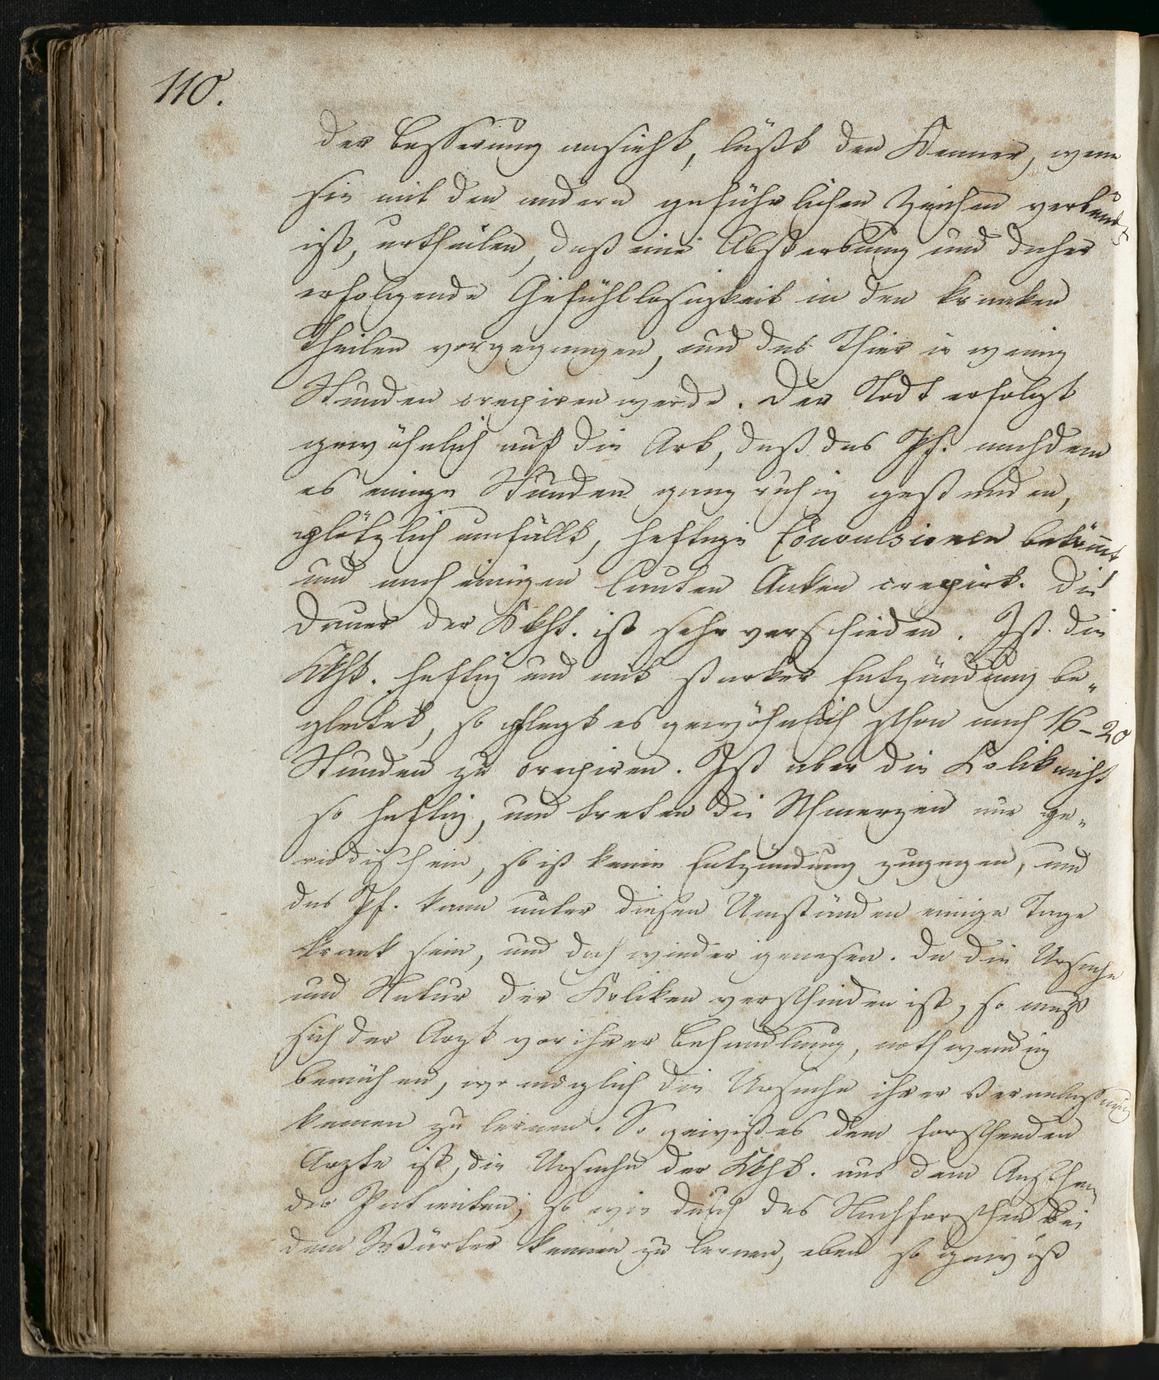 110.
der Besserung ansieht, läßt den Kenner, wenn
sie mit den andern gefährlichen Zeichen verbunden
ist, urtheilen, daß eine Absterbung und daher
erfolgende Gefühllosigkeit in den kranken
Theilen vorgegangen, und das Thier in wenig
Stunden crepiren werde. Der Todt erfolgt
gewöhnlich auf die Art, daß das Pf. nachdem
es einige Stunden ganz ruhig gestanden,
plötzlich umfällt, heftige Convulsionen bekömt
und nach einigen lauten Anken crepirt. Die
Dauer der Kkht. ist sehr verschieden. Ist die
Kkht. heftig und mit starker Entzündung be„
gleitet, so pflegt es gewöhnlich schon nach 16-20
Stunden zu crepiren. Ist aber die Kolik nicht
so heftig, und treten die Schmerzen nur pe„
riodisch ein, so ist keine Entzündung zugegen, und
das Pf. kann unter diesen Umständen einige Tage
krank sein, und doch wieder genesen. Da die Ursache
und Natur der Koliken verschieden ist, so muß
sich der Arzt vor ihrer Behandlung, nothwendig
bemühen, wo möglich die Ursache ihrer Veranlassung
kennen zu lernen. So gewiß es dem forschenden
Arzte ist, die Ursache der Kkht. aus dem Ansehen
des Patienten, so wie durch das Nachforschen bei
dem Wärter kennen zu lernen, eben so gewiß